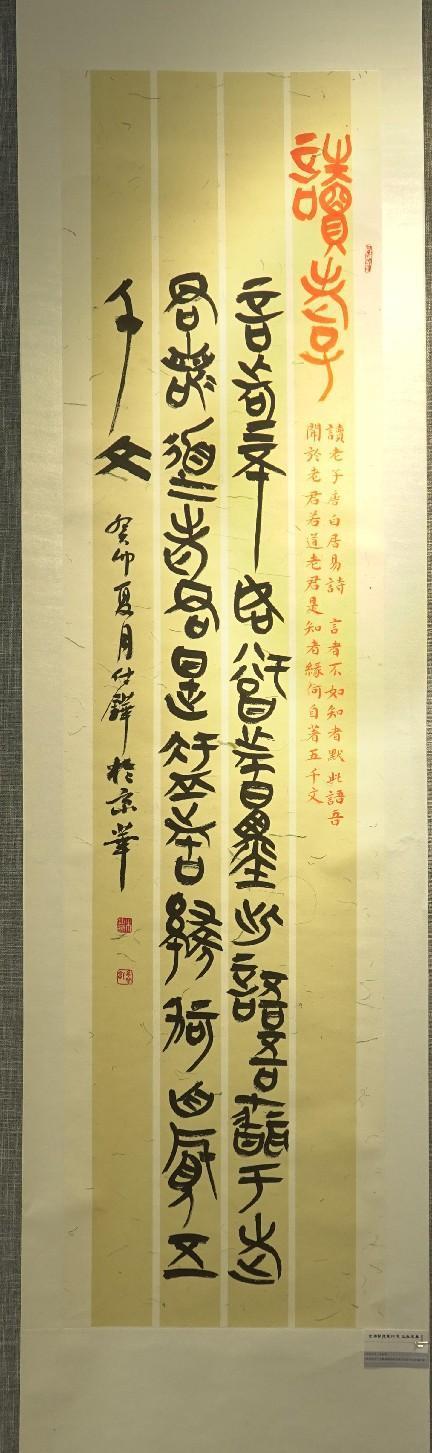 讀老子
讀老子唐白居易詩 言者不如知者默此語吾
聞於老君若道老君是知者緣何自著五千文
言者不如知者默此語吾聞于老
君若道老君是知者緣何自著五
千文
癸卯夏月仕鐸於京華